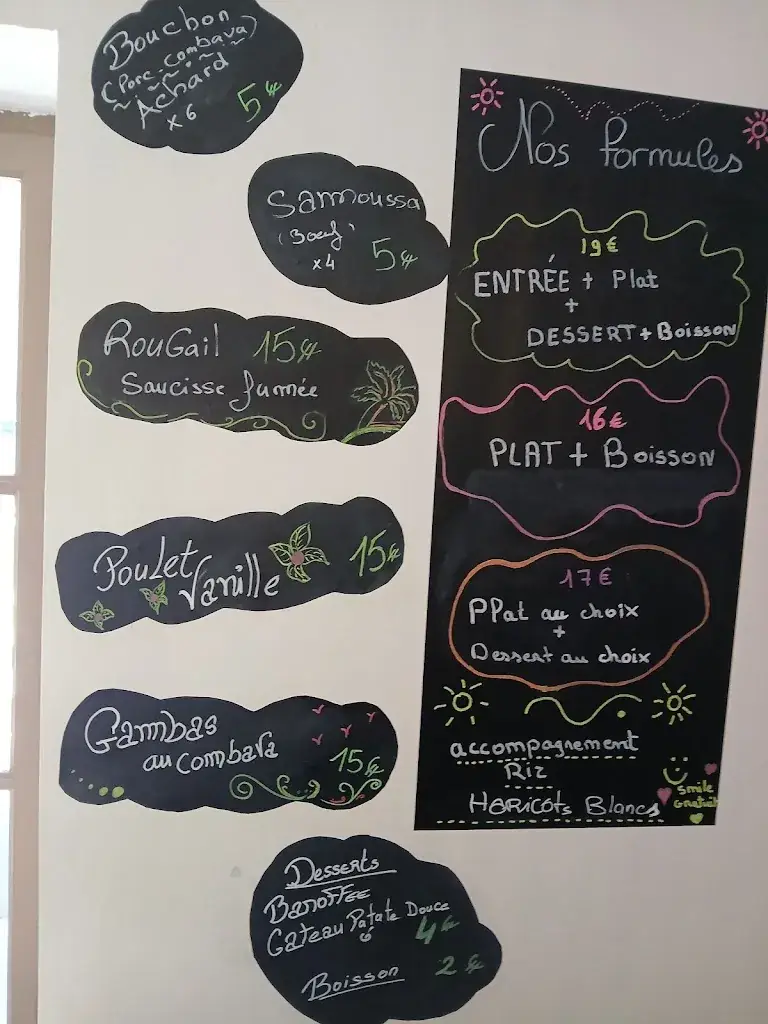 Bouchon
(Porc, combava)
Achard
x 6
5€
Samoussa
(Boeuf)
x4
5€
Rougail 15€
Saucisse fumée
Poulet
Vanille
15€
Gambas
au combava
15€
Desserts
Banoffee
Gateau Patate Douce
4€
Boisson 2€
Nos formules
19€
ENTRÉE + Plat
+
DESSERT + Boisson
16€
PLAT + Boisson
17€
PPlat au choix
+
Dessert au choix
accompagnement
Riz
Haricots Blancs
Smile
Gratuit